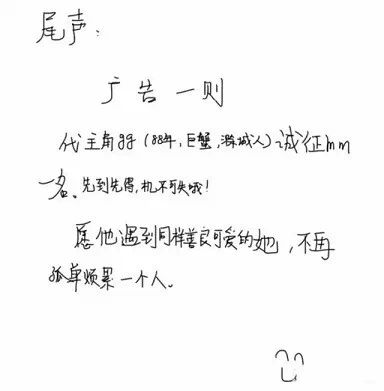 尾声：
广告一则
代主角gg（88年，巨蟹，滁城人）诚征mm
一名。先到先得，机不可失哦！
愿他遇到同样善良可爱的她，不再
孤单烦累一个人。